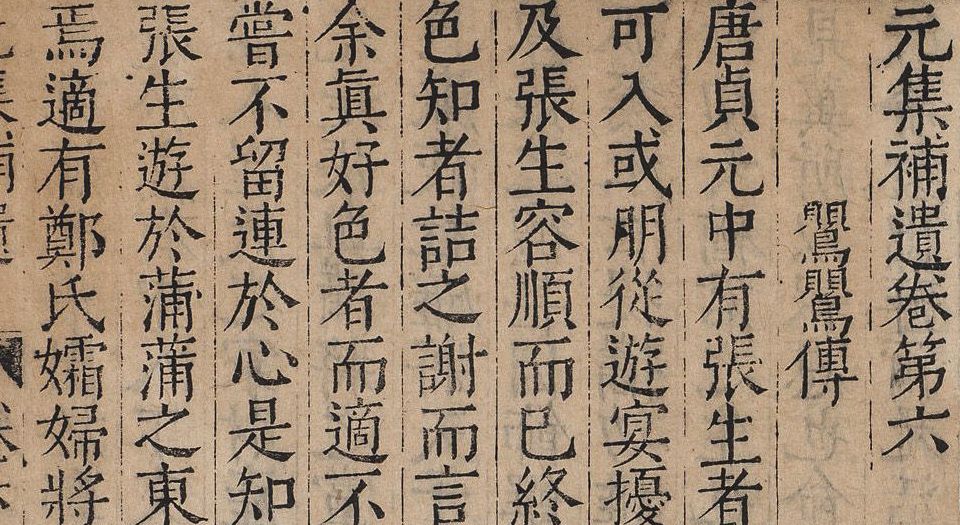 元集補遺卷第六
鸎鸎傳
唐貞元中有張生者
可入或朋從遊宴擾
及張生容順而已終
色知者詰之謝而言
余眞好色者而適不
嘗不留連於心是知
張生遊於蒲蒲之東
焉適有鄭氏孀婦將